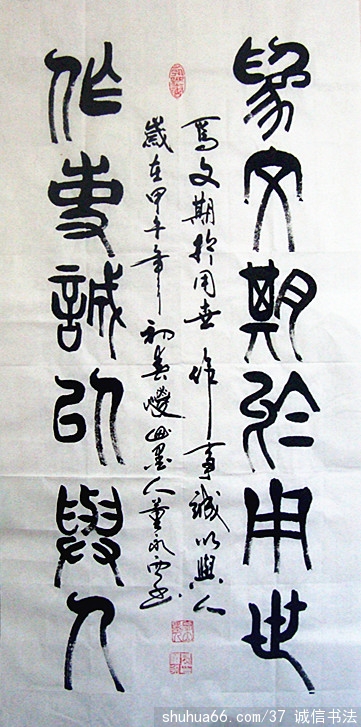 為文期於用世
為文期於用世 作事誠以與人
歲在甲午年初春墨人董永
作事誠以與人
shuhua66.com/37 诚信书法